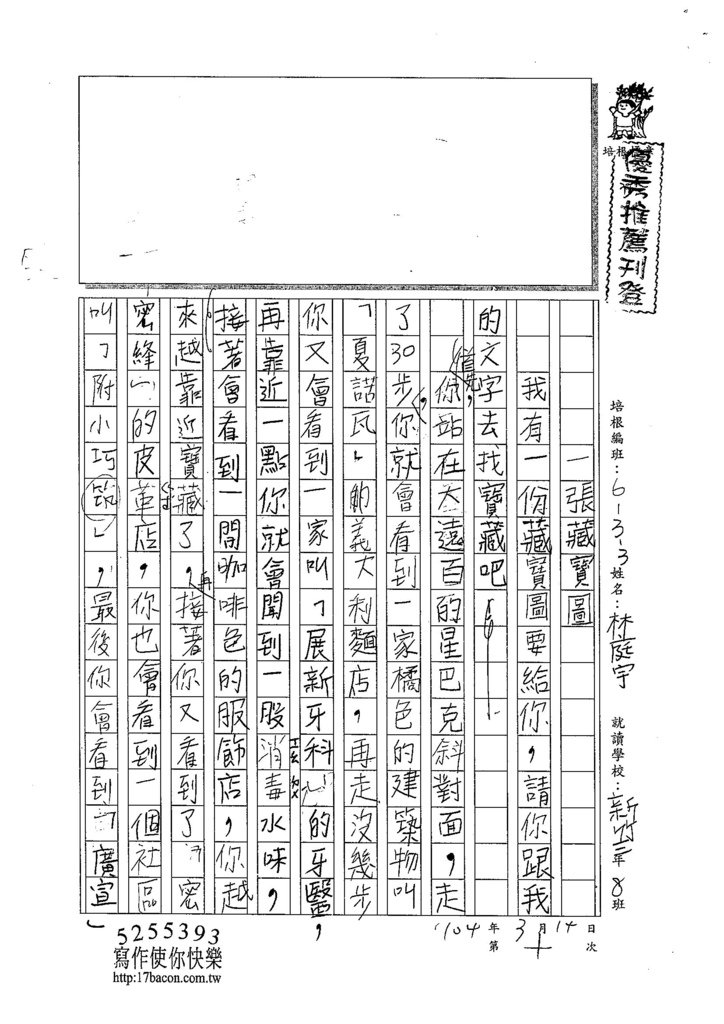 培根作文
優秀推薦刊登
培根編班：6-3-3 姓名：林庭宇 就讀學校：新竹 三年8班
104年3月14日
第十次
一張藏寶圖
我有一份藏寶圖要給你，請你跟我
的文字去找寶藏吧
首先，你站在太遠百的星巴克斜對面，走
了30步，你就會看到一家橘色的建築物叫
「夏諾瓦」的義大利麵店，再走沒幾步
你又會看到一家叫「展新牙科」的牙醫，
再靠近一點你就會聞到一股消毒水味，
接著會看到一間咖啡色的服飾店，你越
來越靠近寶藏了，再接著你又看到了「密
密縫」的皮革店，你也會看到一個社區
叫「附小巧筑」，最後你會看到「廣宣」
5255393
寫作使你快樂
http:17bacon.com.tw